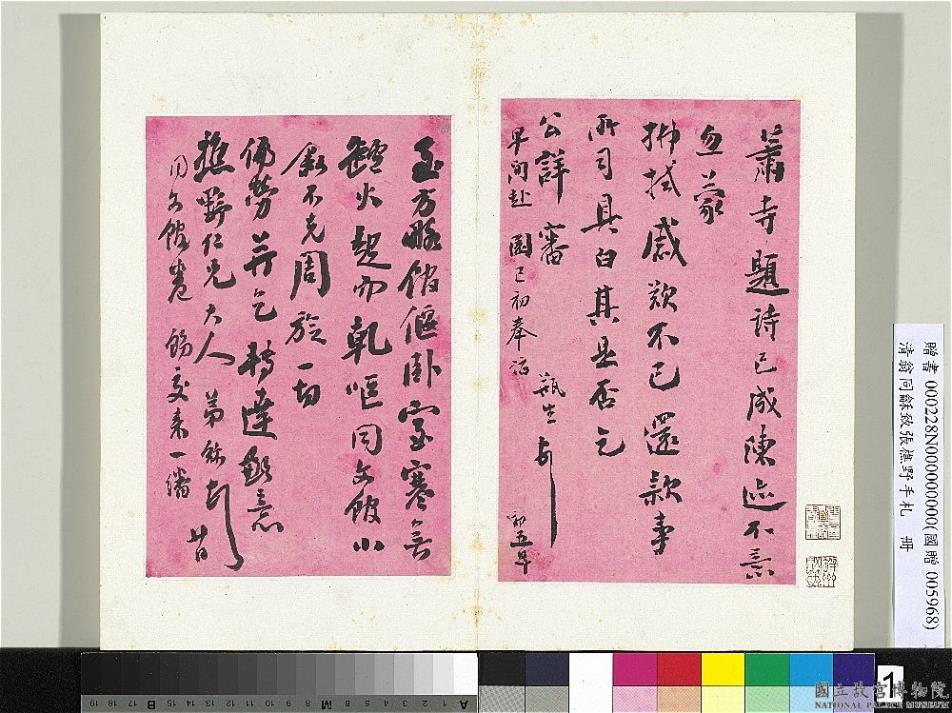 蕭寺題詩已成陳迹不意
忽蒙
拂拭感歎不已還款事
所司具白其是否乞
公詳審
早间赴 園已初奉诣 瓶生 初五早
至方略館偃卧室寒無
爐火 嘔同文館小
叙不克周旋一切
偏勞并乞轉達歉意
樵野仁兄大人 弟龢頓
同文館卷 飭交来一
贈書 000228N000000000(國贈 005968)
清翁同龢致張樵野手札 冊
1
國立故宮博物院
NATIONAL PALACE MUSEUM